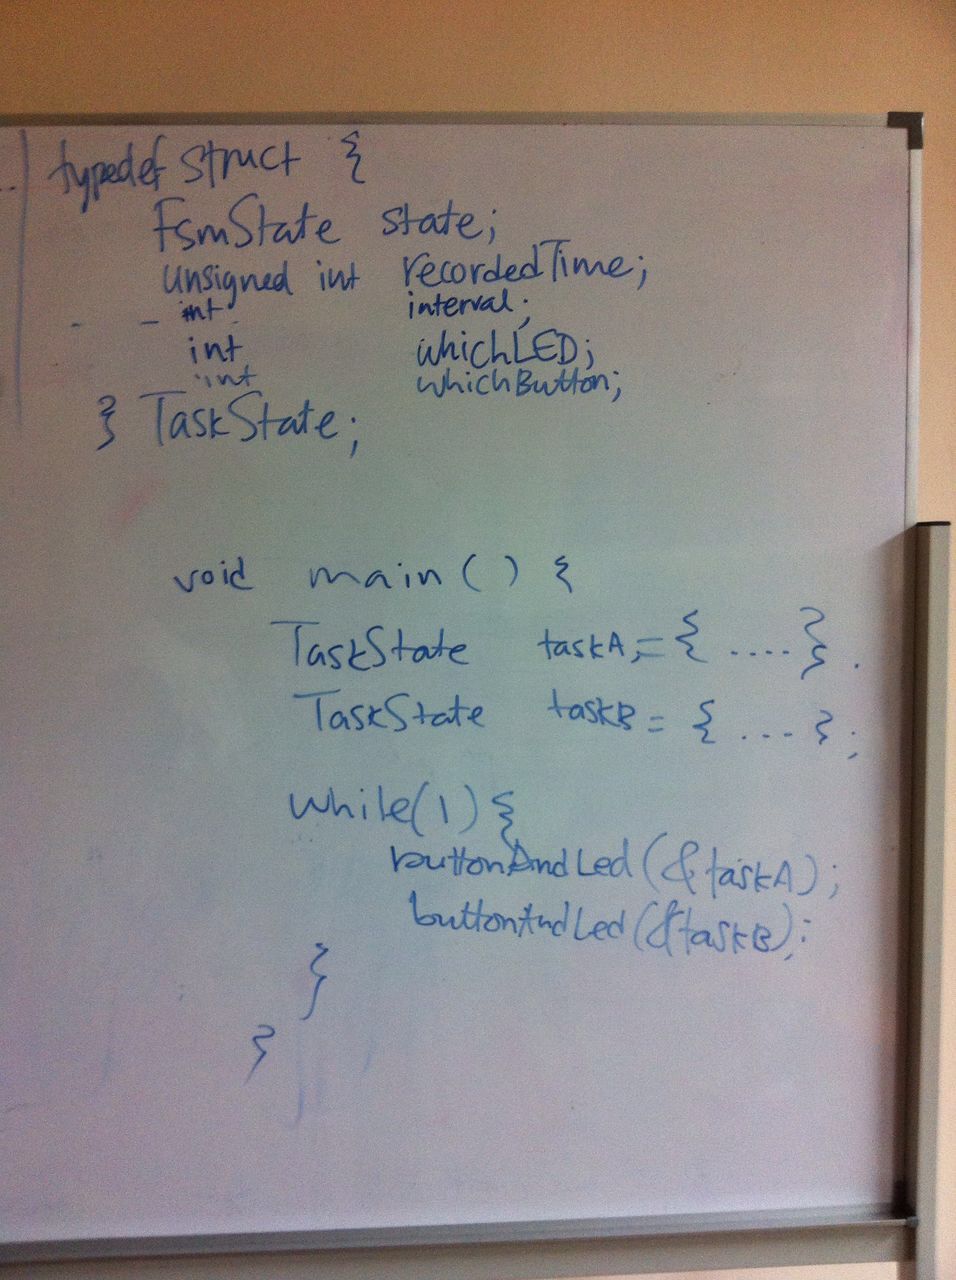 typedef struct {
FsmState state;
unsigned int recordedTime;
int interval;
int whichLED;
int whichButton;
} TaskState;
void main() {
TaskState taskA = { .... };
TaskState taskB = { .... };
while(1) {
buttonAndLed(&taskA);
buttonAndLed(&taskB);
}
}